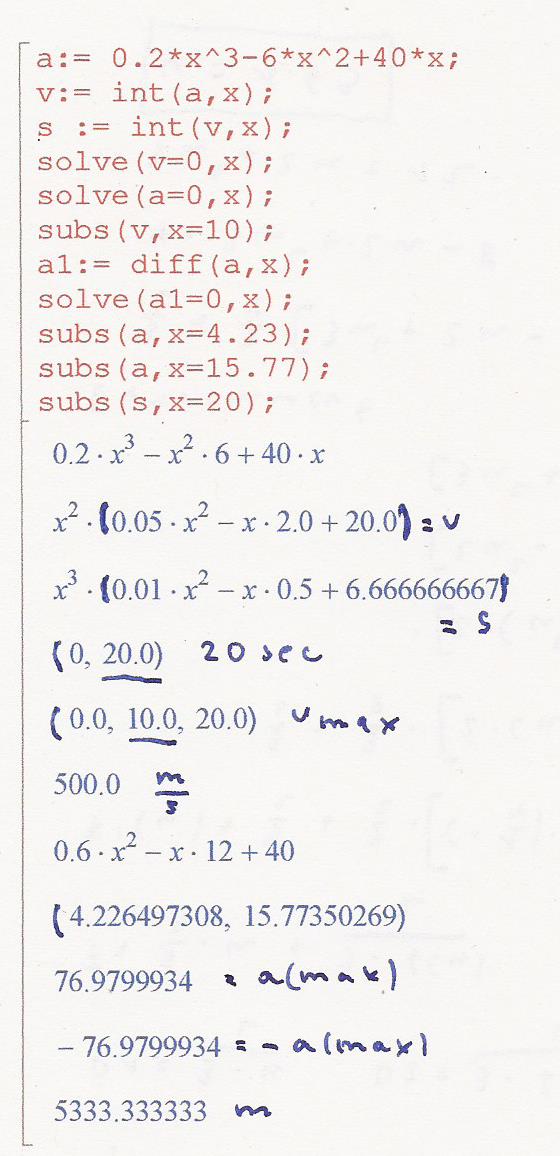 a:= 0.2*x^3-6*x^2+40*x;
v:= int(a,x);
s := int(v,x);
solve(v=0,x);
solve(a=0,x);
subs(v,x=10);
a1:= diff(a,x);
solve(a1=0,x);
subs(a,x=4.23);
subs(a,x=15.77);
subs(s,x=20);
0.2 · x³ − x² · 6 + 40 · x
x² · (0.05 · x² − x · 2.0 + 20.0) = v
x³ · (0.01 · x² − x · 0.5 + 6.666666667)
= s
(0, 20.0) 20 sec
(0.0, 10.0, 20.0) vmax
500.0 m/s
0.6 · x² − x · 12 + 40
(4.226497308, 15.77350269)
76.9799934 = a(max)
− 76.9799934 = - a(max)
5333.333333 m